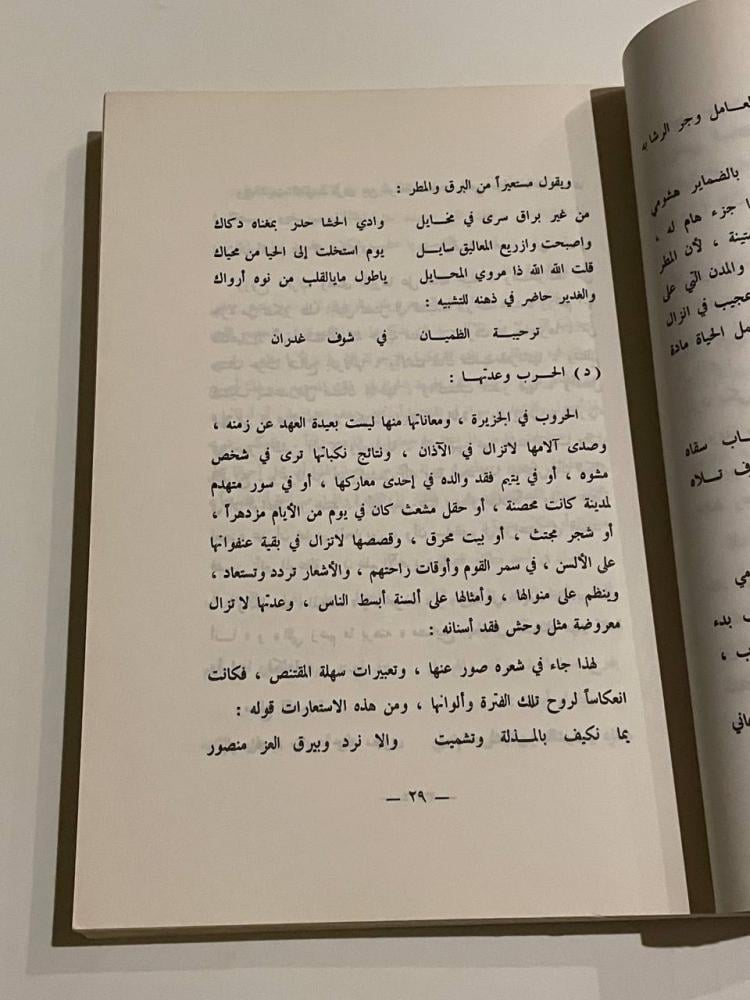 ويقول مستعيراً من البرق والمطر :
من غير براق سرى في مخايل وادي الحشا حدر بمغناه دكاك
واصبحت وازريع المعاليق سايل يوم استخلت إلى الحيا من محياك
قلت الله الله ذا مروي المحايل ياطول مايالقلب من نوه أرواك
والغدير حاضر في ذهنه للتشبيه :
ترحيبة الظميان في شوف غدران
(د) الحرب وعدتها :
الحروب في الجزيرة ، ومعاناتها منها ليست بعيدة العهد عن زمنه ،
وصدى آلامها لاتزال في الآذان ، ونتائج نكباتها ترى في شخص
مشوه ، أو في يتيم فقد والده في إحدى معاركها ، أو في سور متهدم
لمدينة كانت محصنة ، أو حقل مشعث كان في يوم من الأيام مزدهراً ،
أو شجر مجتث ، أو بيت محرق ، وقصصها لاتزال في بقية عنفوانها
على الألسن ، في سمر القوم وأوقات راحتهم ، والأشعار تردد وتستعاد ،
وينظم على منوالها ، وأمثالها على ألسنة أبسط الناس ، وعدتها لا تزال
معروضة مثل وحش فقد أسنانه :
لهذا جاء في شعره صور عنها ، وتعبيرات سهلة المقتنص ، فكانت
انعكاساً لروح تلك الفترة وألوانها ، ومن هذه الاستعارات قوله :
يما نكيف بالمذلة وتشميت والا نرد وبيرق العز منصور
— ٢٩ —
وجر الرشا به
بالضماير هشومي
جزء هام له ،
، لأن المطر
والمدن التي على
عجيب في انزال
الحياة مادة
سقاه
تلاه
بدء